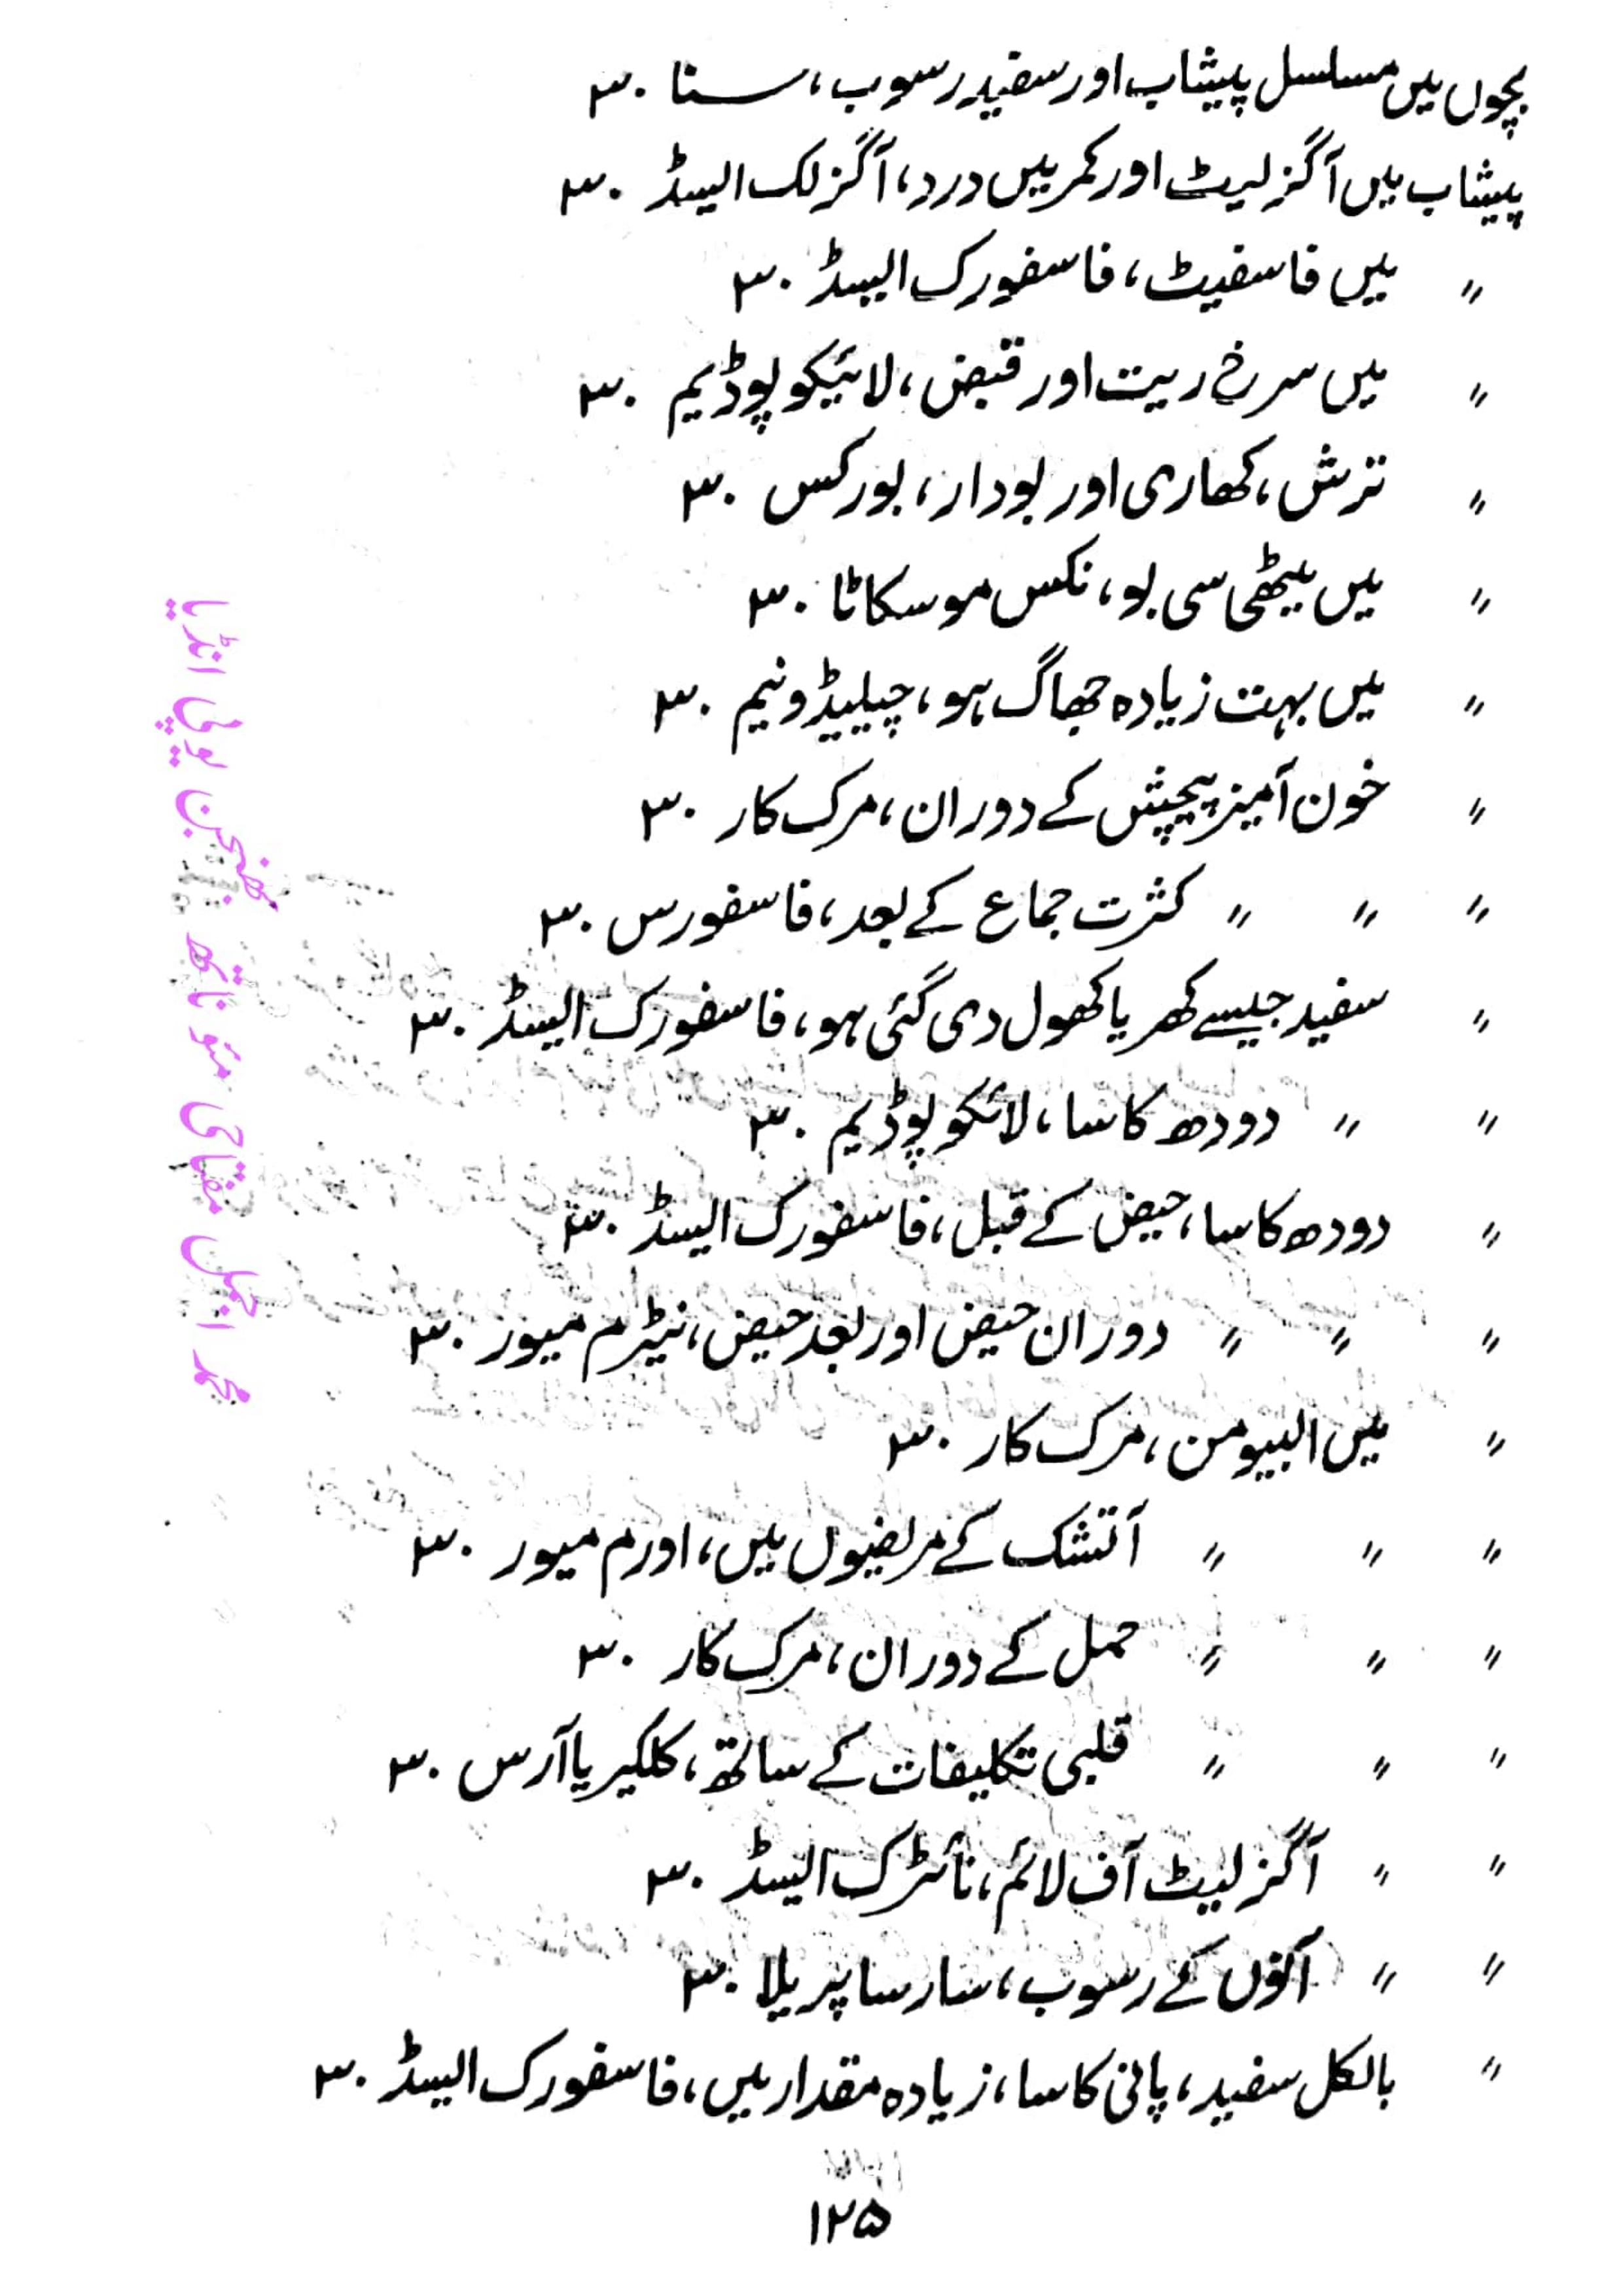 بچوں میں مسلسل پیشاب اور سفید رسوب، سنا ۳۰
پیشاب میں آگزلیٹ اور کمر میں درد، آگزلک ایسڈ ۳۰
〃 میں فاسفیٹ، فاسفورک ایسڈ ۳۰
〃 میں سرخ ریت اور قبض، لائیکوپوڈیم ۳۰
〃 ترش، کھاری اور بودار، بورکس ۳۰
〃 میں میٹھی سی بو، نکس موسکاٹا ۳۰
〃 میں بہت زیادہ جھاگ ہو، چیلیڈونیم ۳۰
〃 خون آمیز پیچش کے دوران، مرک کار ۳۰
〃 〃 〃 کثرت جماع کے بعد، فاسفورس ۳۰
〃 سفید جیسے کھریا کھول دی گئی ہو، فاسفورک ایسڈ ۳۰
〃 〃 دودھ کا سا، لائکوپوڈیم ۳۰
〃 دودھ کا سا، حیض کے قبل، فاسفورک ایسڈ ۳۰
〃 〃 〃 دوران حیض اور بعد حیض، نیٹرم میور ۳۰
〃 میں البیومن، مرک کار ۳۰
〃 〃 〃 آتشک کے مریضوں میں، اورم میور ۳۰
〃 〃 〃 حمل کے دوران، مرک کار ۳۰
〃 〃 〃 قلبی تکلیفات کے ساتھ، کلکیریا آرس ۳۰
〃 〃 آگزلیٹ آف لائم، نائٹرک ایسڈ ۳۰
〃 〃 آؤں کے رسوب، سارساپریلا ۳۰
〃 بالکل سفید، پانی کا سا، زیادہ مقدار میں، فاسفورک ایسڈ ۳۰
۱۲۵
محمد اجمل مفتاحی مئو ناتھ بھنجن یوپی انڈیا